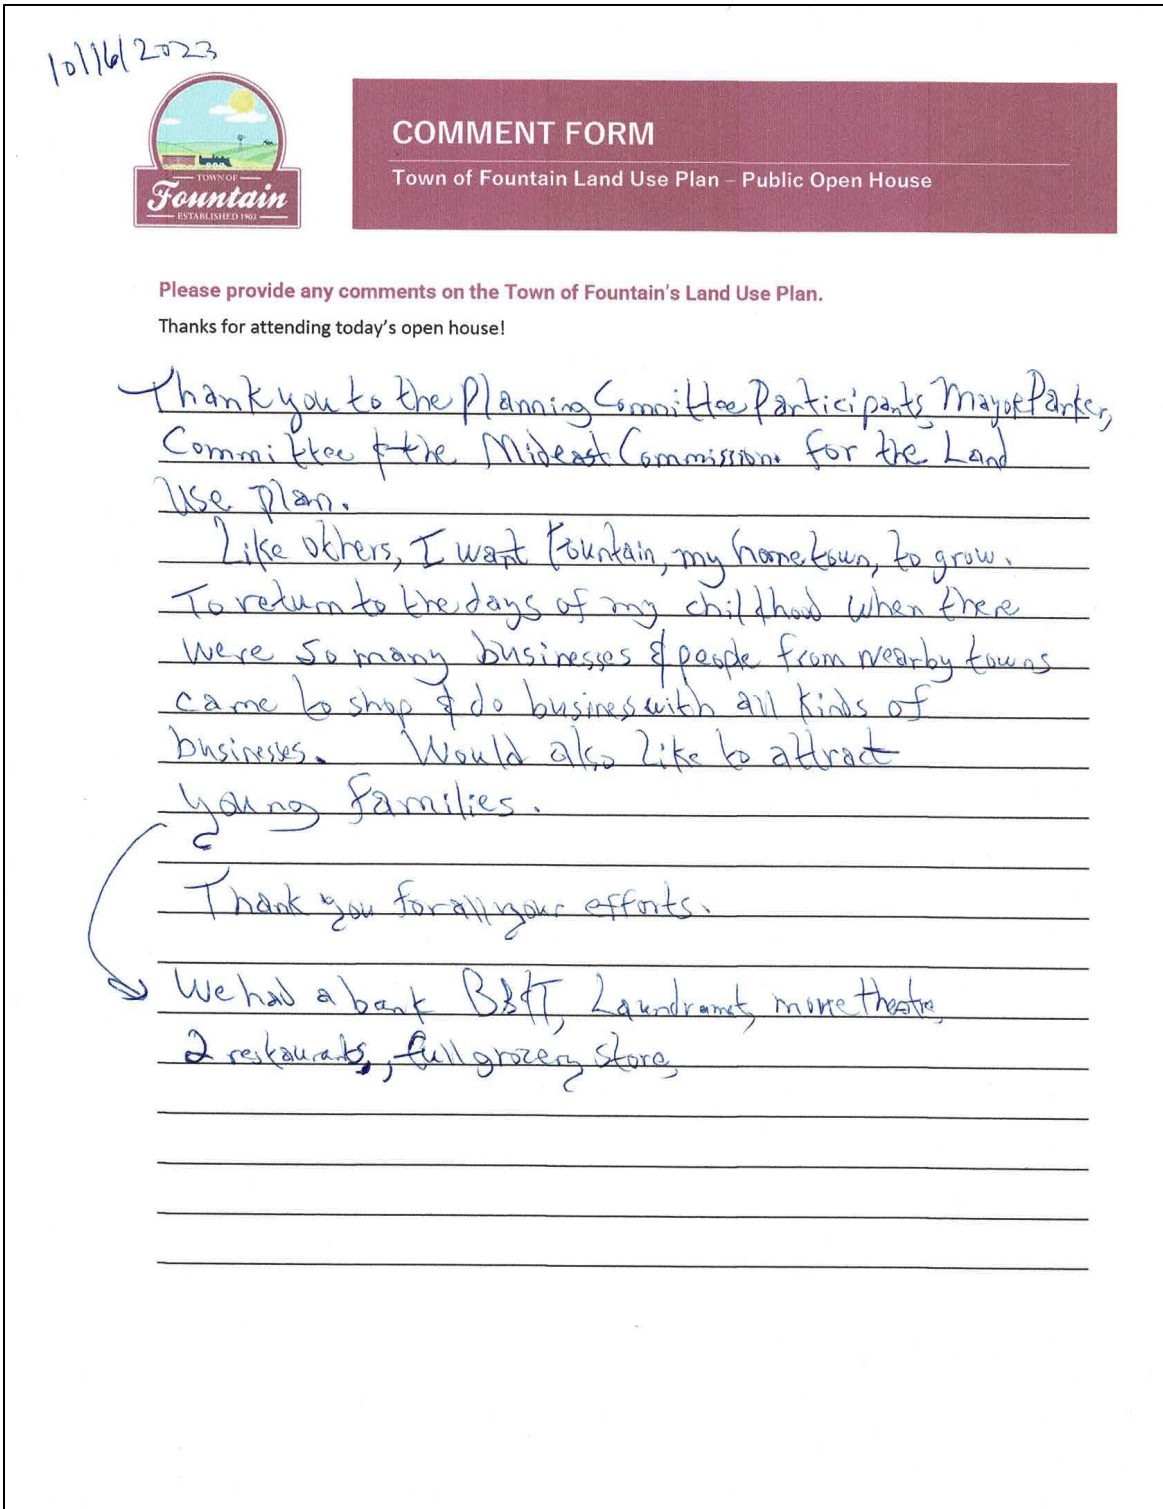 10/16/2023
TOWN OF
Fountain
ESTABLISHED 1903
COMMENT FORM
Town of Fountain Land Use Plan – Public Open House
Please provide any comments on the Town of Fountain's Land Use Plan.
Thanks for attending today's open house!
Thank you to the Planning Committee Participants, Mayor Parker,
Committee & the Mideast Commission for the Land
Use plan.
Like others, I want Fountain, my hometown, to grow.
To return to the days of my childhood when there
were so many businesses & people from nearby towns
came to shop & do business with all kinds of
businesses. Would also like to attract
young families.
Thank you for all your efforts.
We had a bank BB&T, Laundramat, movie theatre,
2 restaurants, full grocery store,